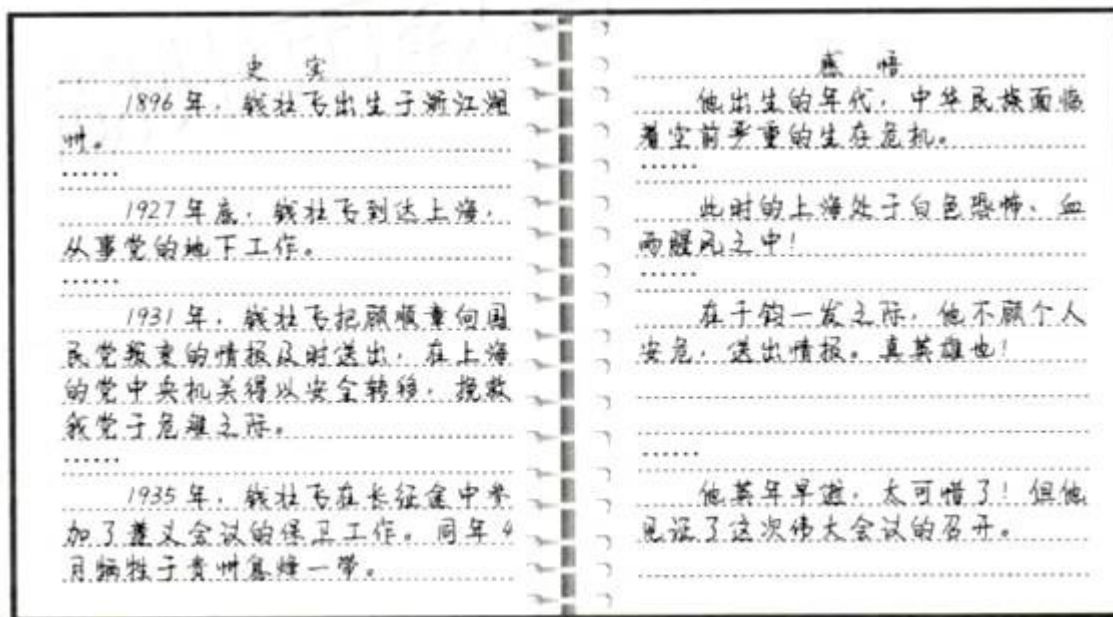 史实
1896年，钱壮飞出生于浙江湖
州。
……
1927年底，钱壮飞到达上海，
从事党的地下工作。
……
1931年，钱壮飞把顾顺章向国
民党叛变的情报及时送出，在上海
的党中央机关得以安全转移，挽救
我党于危难之际。
……
1935年，钱壮飞在长征途中参
加了遵义会议的保卫工作。同年4
月牺牲于贵州息烽一带。
感悟
他出生的年代，中华民族面临
着空前严重的生存危机。
……
此时的上海处于白色恐怖、血
雨腥风之中！
……
在千钧一发之际，他不顾个人
安危，送出情报。真英雄也！
……
他英年早逝，太可惜了！但他
见证了这次伟大会议的召开。